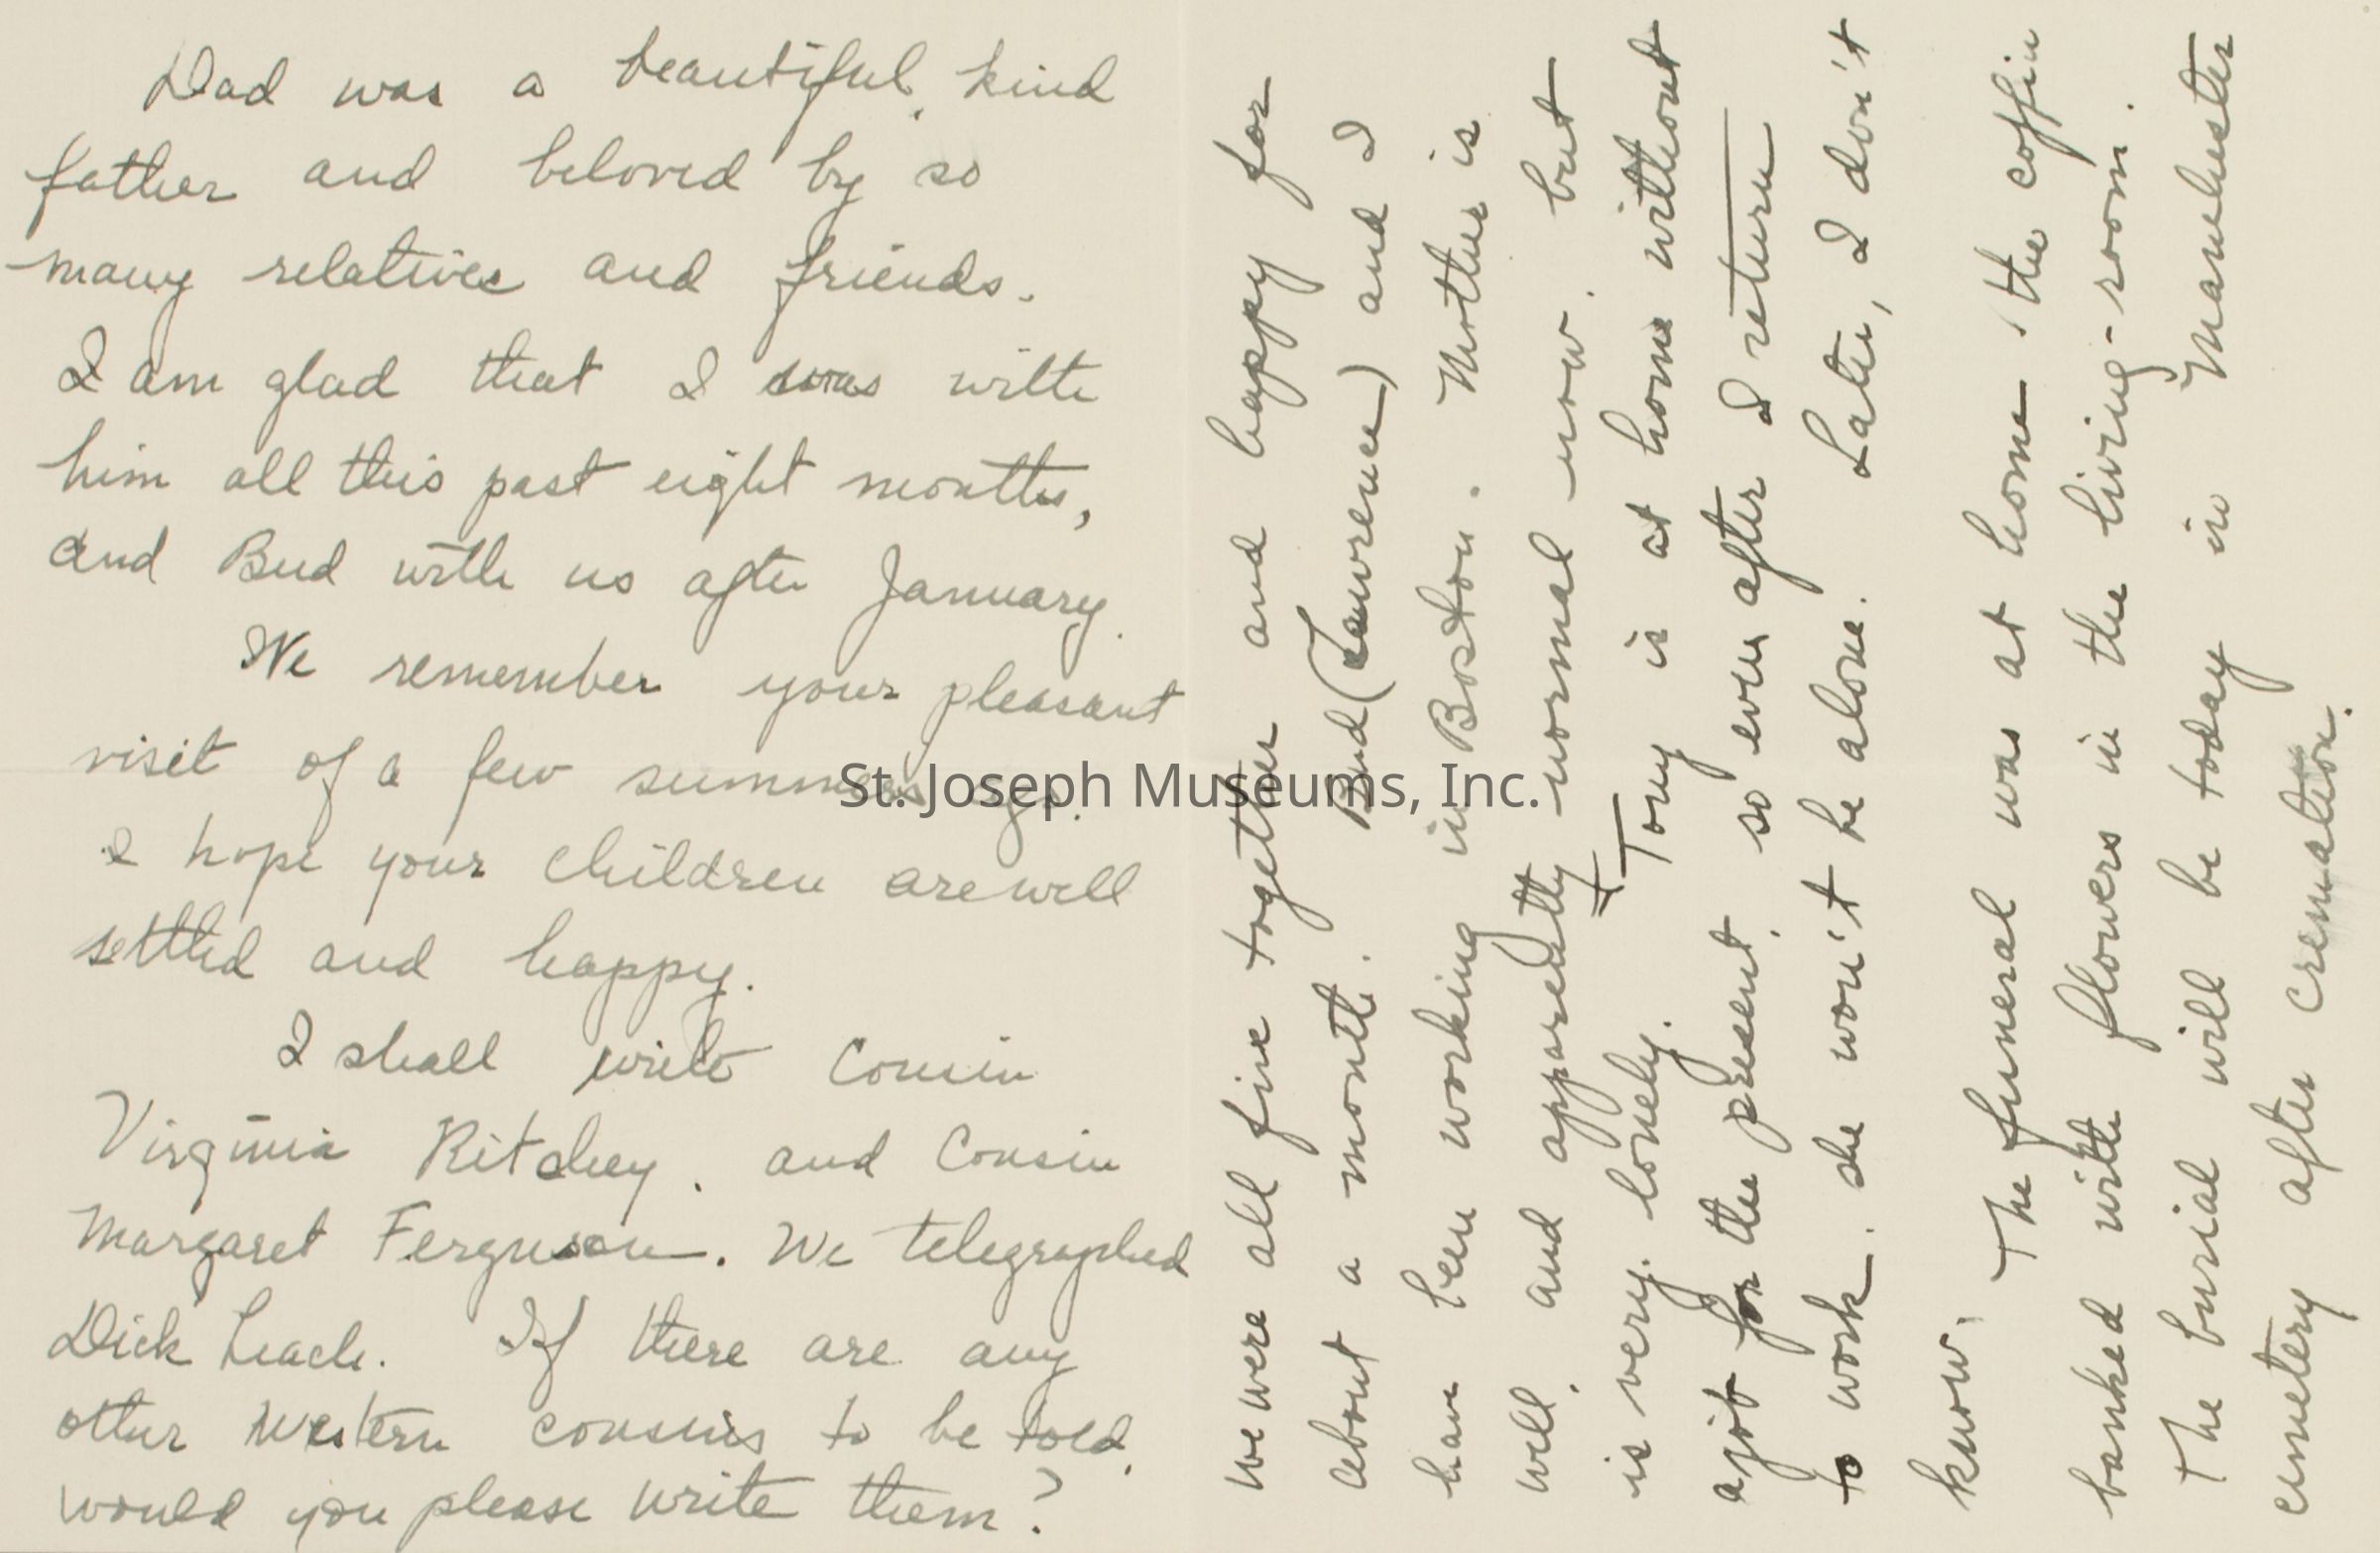 Dad was a beautiful, kind
father and beloved by so
many relatives and friends.
I am glad that I was with
him all this past eight months,
and Bud with us after January.
We remember your pleasant
visit of a few summers ago.
I hope your children are well
settled and happy.
I shall write Cousin
Virginia Ritchey, and Cousin
Margaret Ferguson. We telegraphed
Dick Leach. If there are any
other western cousins to be told,
would you please write them?
we were all five together and happy for
about a month. Bud (Lawrence) and I
have been working in Boston. Mother is
well, and apparently normal now, but
is very, lonely. Tony is at home without
a job for the present, so even after I return
to work, she won't be alone. Later, I don't
know. The funeral was at home - the coffin
banked with flowers in the living-room.
The burial will be today in Manchester
cemetery after cremation.
St. Joseph Museums, Inc.